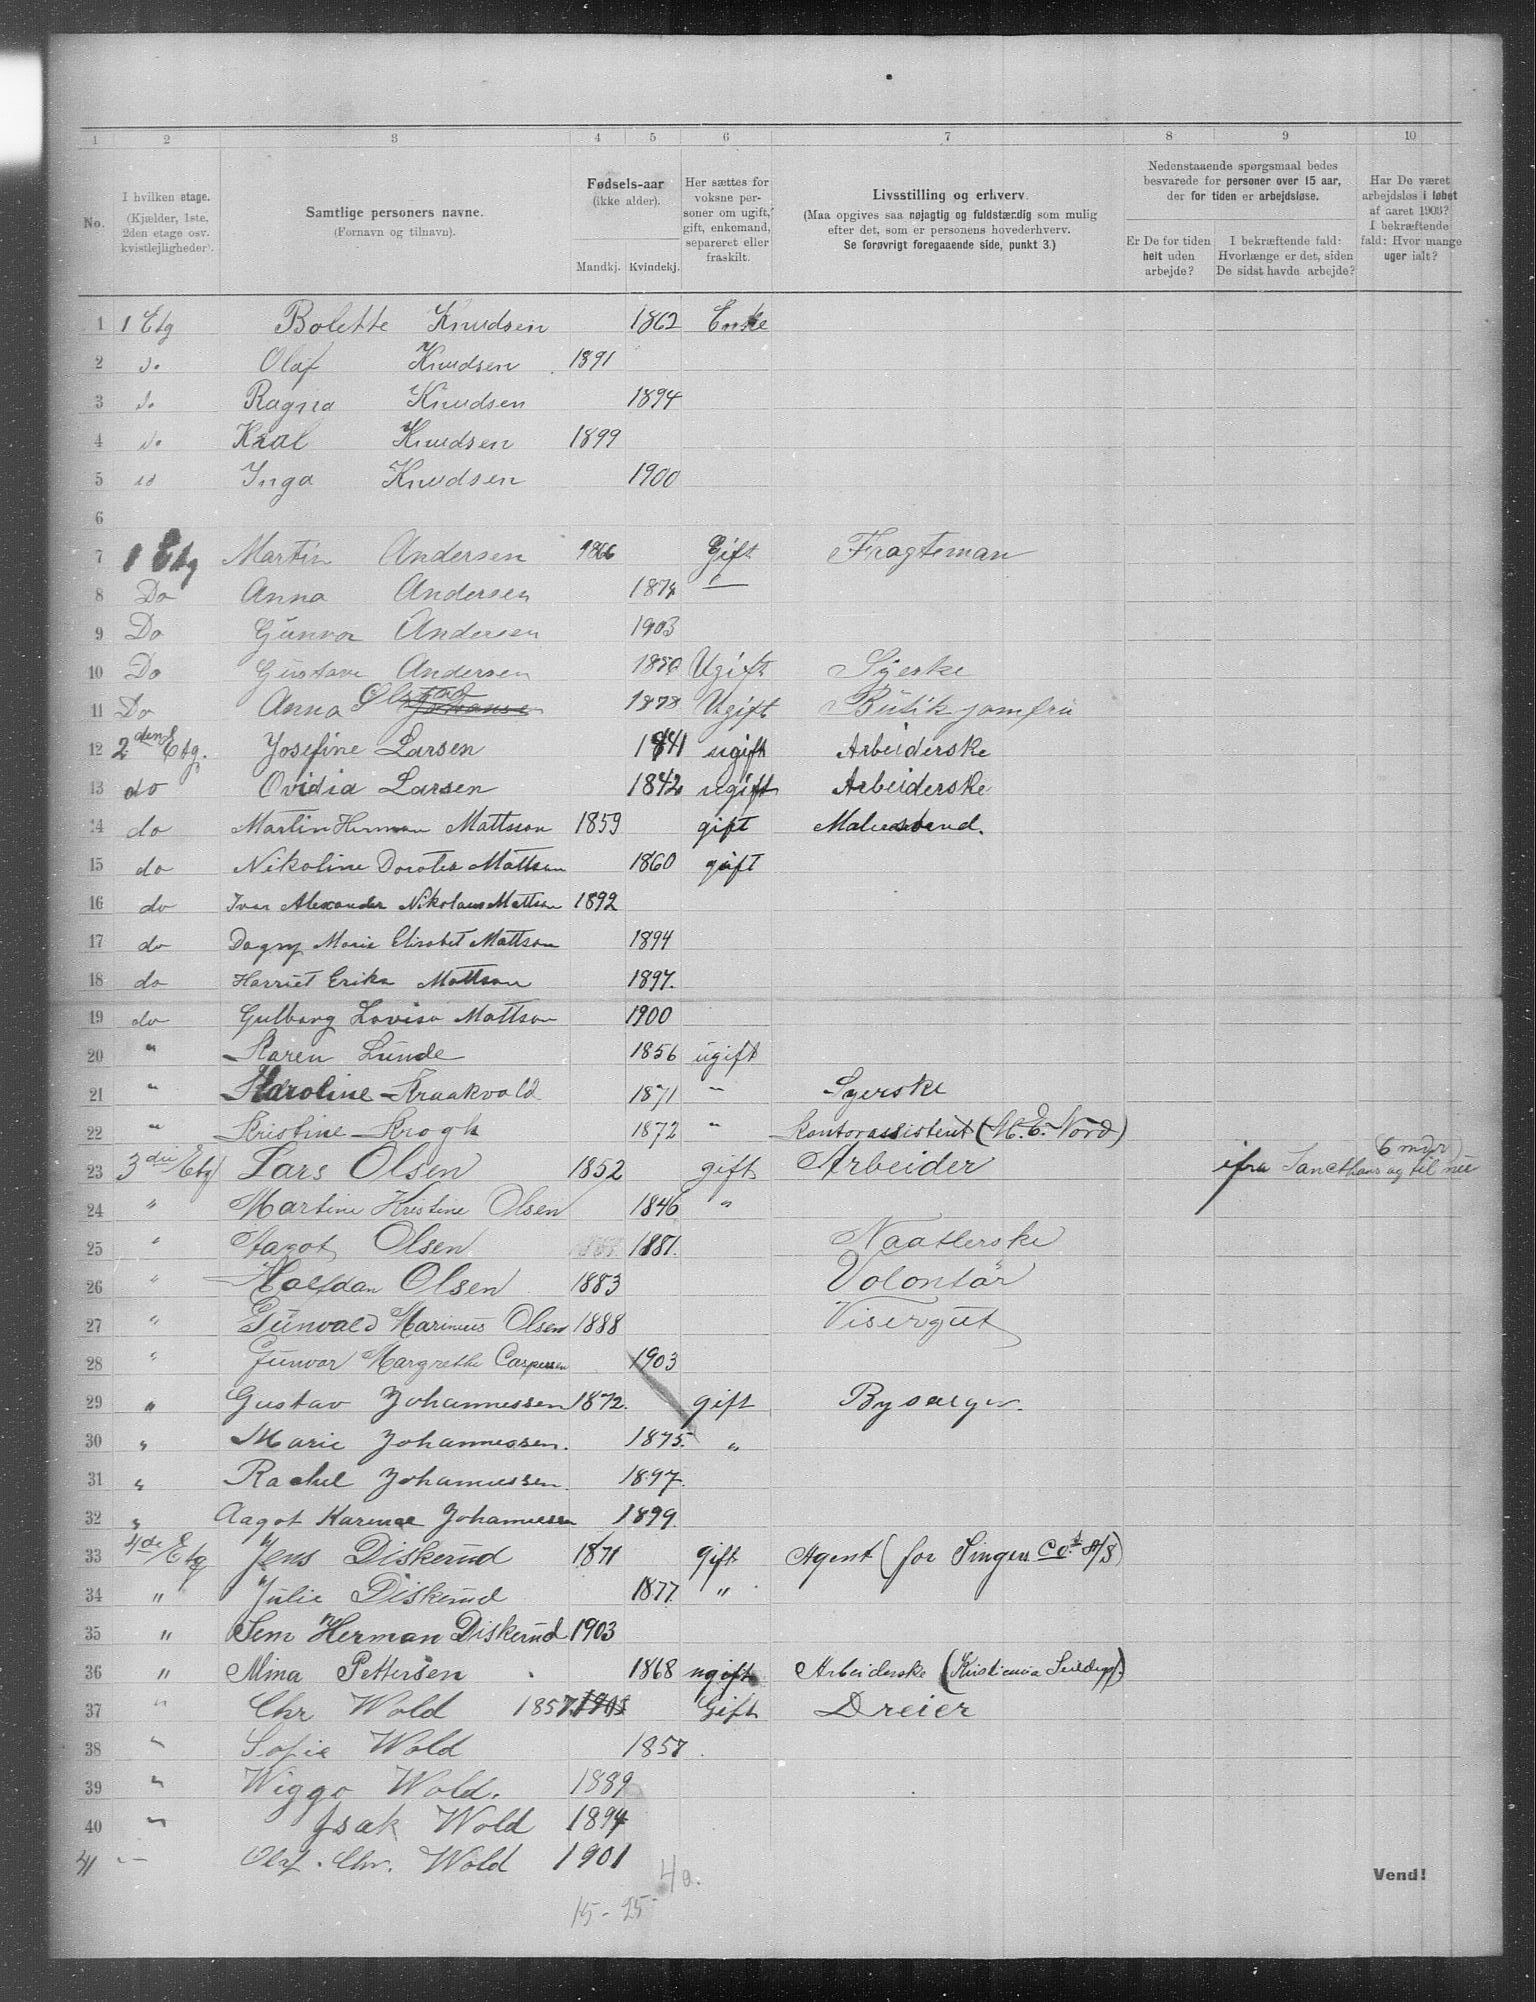 1 2 3 4 5 6 7 8 9 10
No.
I hvilken etage. (Kjælder, 1ste, 2den etage osv. kvistlejligheder).
Samtlige personers navne. (Fornavn og tilnavn).
Fødsels-aar (ikke alder).
Mandkj. Kvindekj.
Her sættes for voksne personer om ugift, gift, enkemand, separeret eller fraskilt.
Livsstilling og erhverv.
(Maa opgives saa nøjagtig og fuldstændig som mulig efter det, som er personens hovederhverv.
Se forøvrigt foregaaende side, punkt 3.)
Nedenstaaende spørgsmaal bedes besvarede for personer over 15 aar, der for tiden er arbejdsløse.
Er De for tiden helt uden arbejde?
I bekræftende fald: Hvorlænge er det, siden De sidst havde arbejde?
Har De været arbejdsløs i løbet af aaret 1903? I bekræftende fald: Hvor mange uger ialt?
1 1 Etg Bolette Knudsen 1862 Enke
2 do Olaf Knudsen 1891
3 do Ragna Knudsen 1894
4 do Kral Knudsen 1899
5 do Inga Knudsen 1900
6
7 1 Etg Martin Andersen 1866 Gift Fragteman
8 Do Anna Andersen 1874 —
9 Do Gunvor Andersen 1903
10 Do Gustava Andersen 1850 Ugift Syeske
11 Do Anna 1878 Ugift Butik jomfru
12 2den Etg. Josefine Larsen 1841 ugift Arbeiderske
13 do Ovidia Larsen 1842 ugift Arbeiderske
14 do Martin Herman Mattsson 1859 gift
15 do Nikoline Dorotea Mattson 1860 gift
16 do Ivar Alexander Nikolaus Mattson 1892
17 do Dagny Marie Elisabet Mattson 1894
18 do Harriet Erika Mattson 1897.
19 do Gulborg Lovisa Mattson 1900
20 " Karen Lunde 1856 ugift
21 " Karoline Kraakvold 1871 " Syerske
22 " Kristine Krogh 1872 " Kontorassistent (M. E. Nord)
23 3die Etg Lars Olsen 1852 gift Arbeider ifra Sancthans og til nu (6 mdr)
24 " Martine Kristine Olsen 1846 "
25 " Aagot Olsen 1881. Naatlerske
26 " Halfdan Olsen 1883 Volontär
27 " Gunvald Marinius Olsen 1888 Visergut
28 " Gunvor Margrethe Caspersen 1903
29 " Gustav Johannessen 1872. gift Bysælger.
30 " Marie Johannessen. 1875. "
31 " Rachel Johannessen. 1897.
32 " Aagot Karense Johannessen 1899.
33 4de Etg Jens Diskerud 1871 gift Agent (for Singer Co.s A/S)
34 " Julie Diskerud 1877. "
35 " Sem Herman Diskerud 1903
36 " Mina Pettersen 1868 ugift Arbeiderske (Kristiania
37 " Chr Wold 1857 1903 Gift Dreier
38 " Sofie Wold 1857.
39 " Wiggo Wold. 1889
40 " Isak Wold 1894
41 — Olaf. Chr. Wold 1901
40.
15 - 25
Vend!